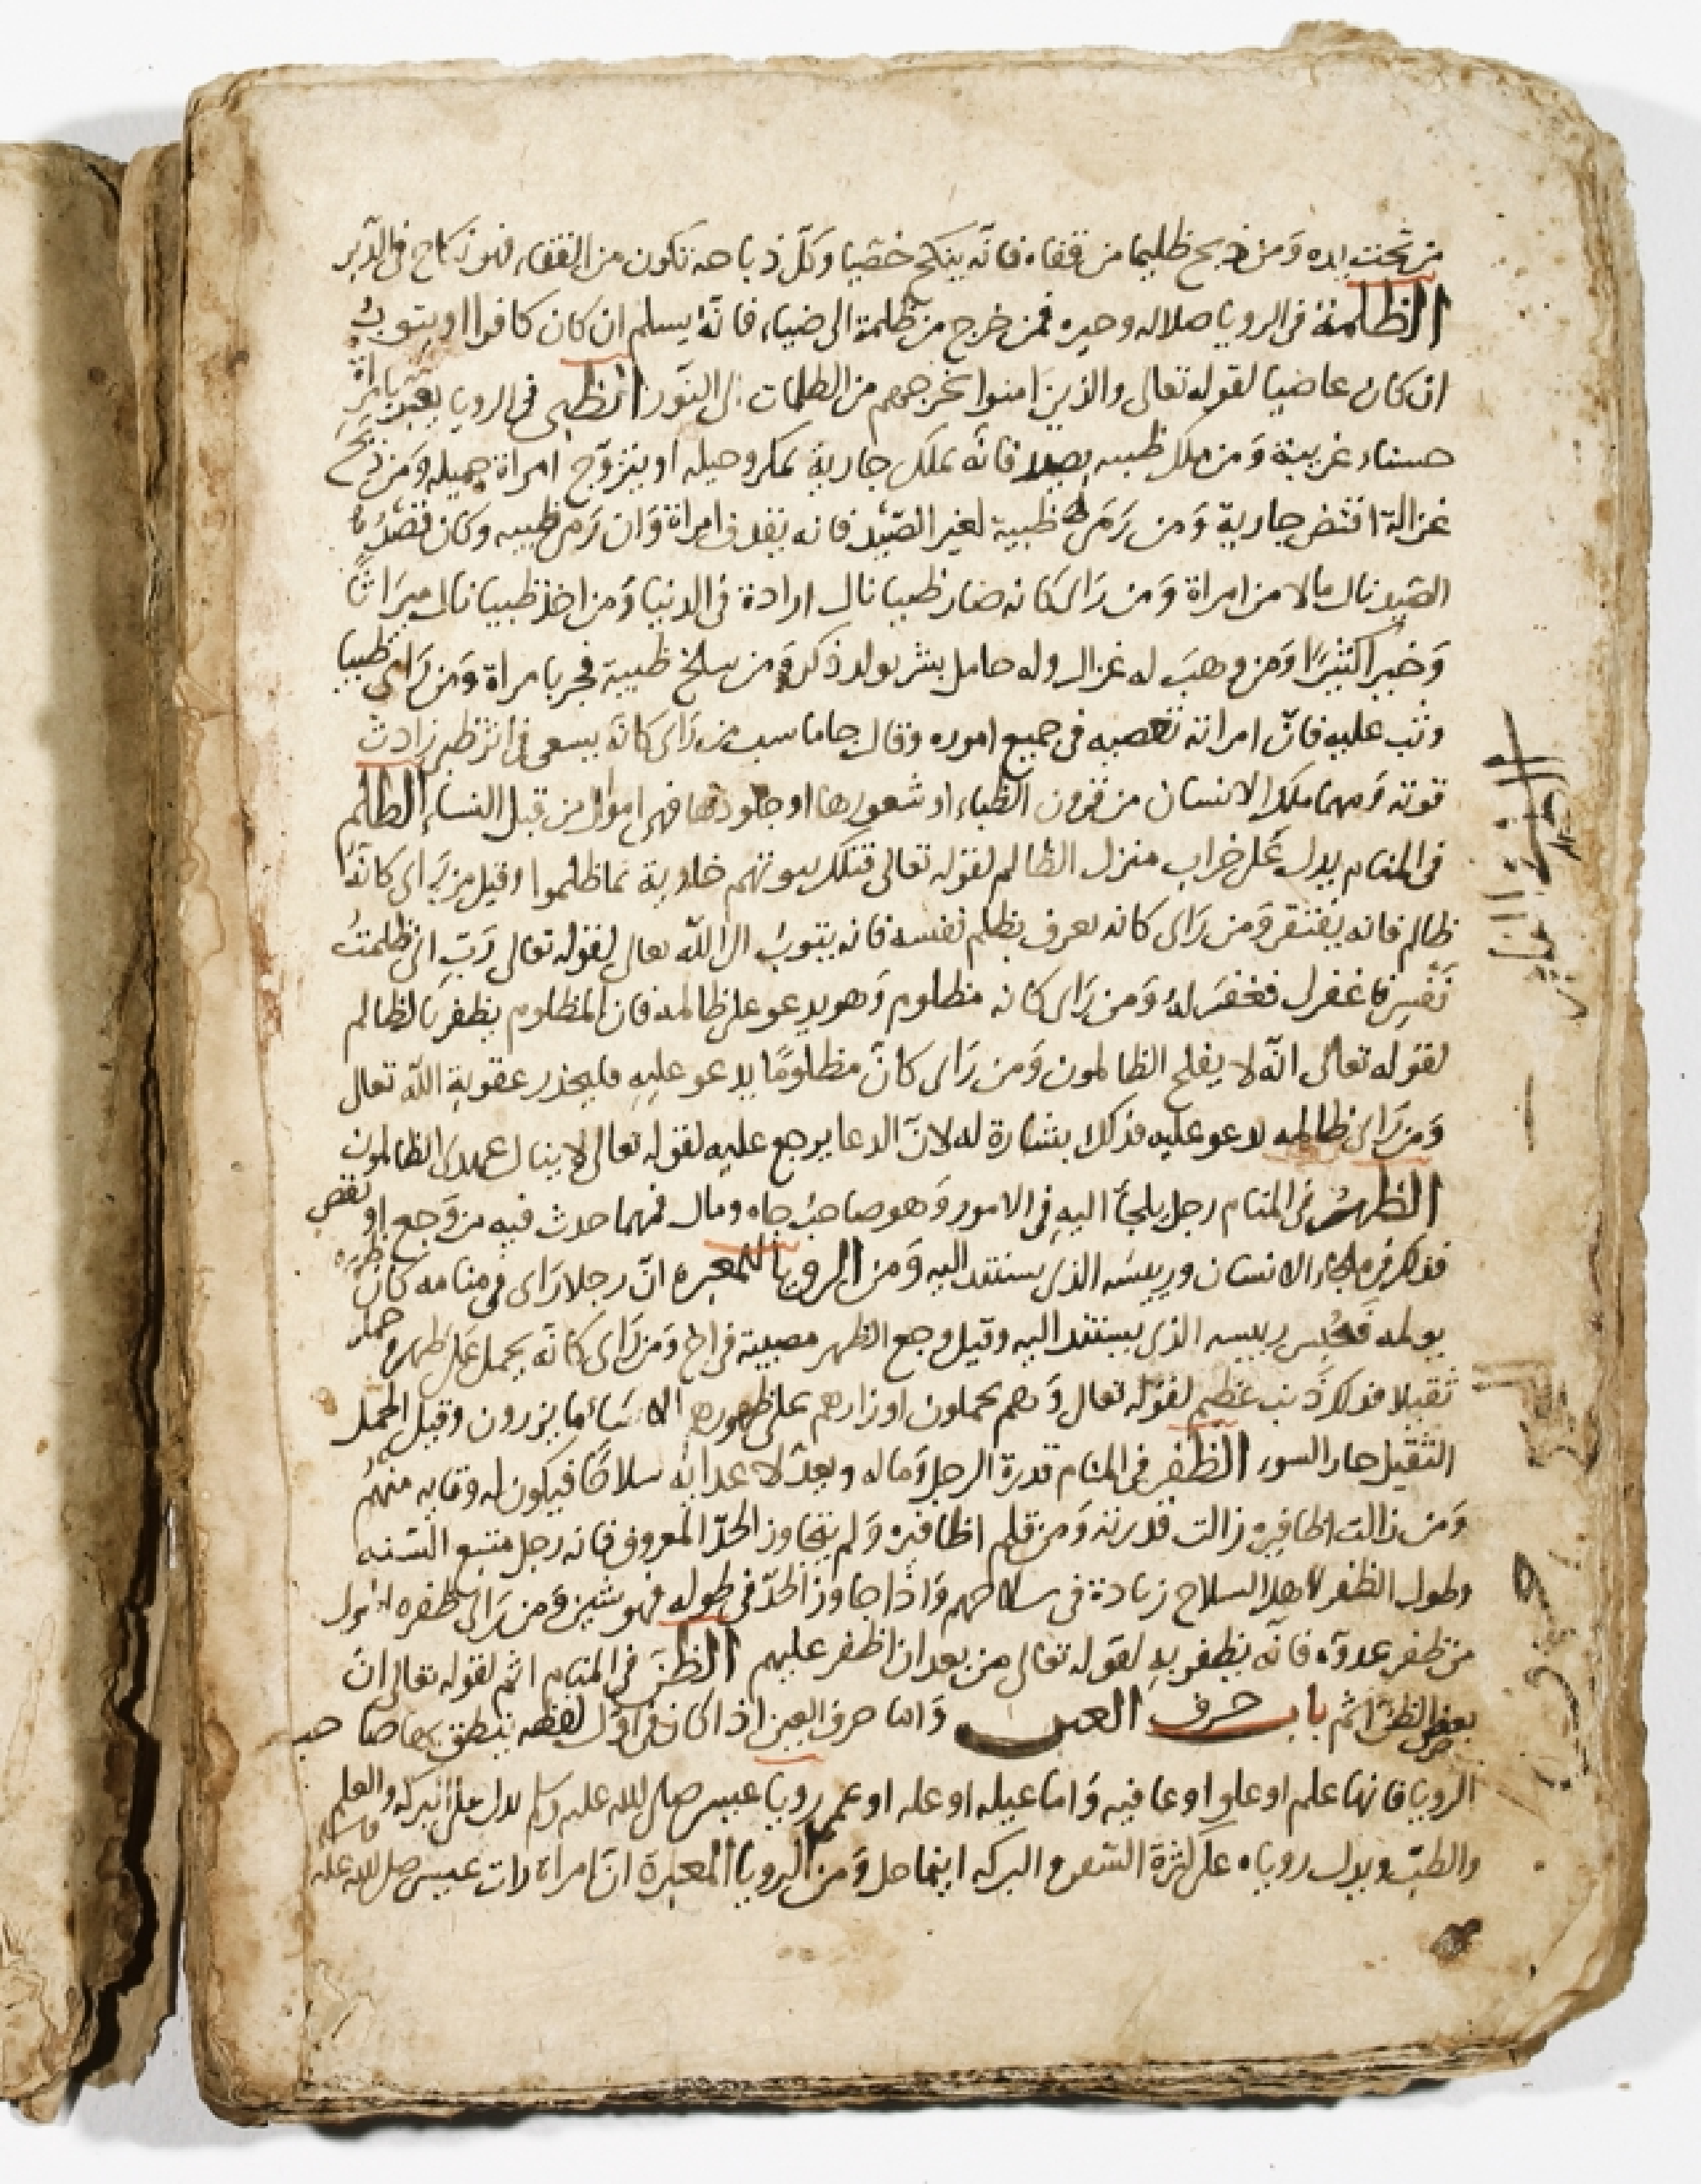 من تحت يده وَمن ذبح ظليما من قفاه فانّه ينكح خصيا وكلّ ذباحه تكون من القفاء فهو نكاح في الدّبر
الظلمة في الرويا ضلاله وحيره فمن خرج من ظلمة الى ضياء فانّه يسلم ان كان كافرا او يتوبُ
ان كان عاصيا لقوله تعالى والذينَ امنوا يخرجهم من الظلمات الى النّور الظبى في الرويا يعبر بامراة
حسناء غريبة وَمن ملك ظبيه بصيد فانّه يملك جارية بمكر وحيله او يتزوّج امراة جميله وَمن ذبحَ
غزالة افتض جارية وَمن رَمَى ظبية لغير الصّيد فانه يقذف امراة وَان رَمى ظبيه وكان قصدُهُ
الصّيد نال مالا من امراة وَمن رَاى كانه صار ظبيا نال ارادة في الدنيا وَمن اخذ ظبيا نال ميرَاثًا
وَخيرا كثيرًا وَمن وهبَ له غزال وله حامل بشر بولد ذكر وَمن سلخ ظبية فجر بامراة وَمن رَاى ظبيا
وثب عليه فانّ امراته تعصيه في جميع اموره وقال جاماسب من رَاى كانّه يسعى في اثر ظبى زادت
قوته وَمهما ملك الانسان من قرون الظباء او شعورها او جلودها فهى اموال من قبل النساء الظالم
في المنام يدل عَلى خراب منزل الظالم لقوله تعالى فتلك بيوتهم خاوية بما ظلموا وقيل من رَاى كانّهُ
ظالم فانه يفتقر وَمن رَاى كانه يعرف بظلم نفسه فانه يتوبُ الى اللّه تعالى لقوله تعالى رَبّ انى ظلمتُ
نَفسِى فاغفرلى فغفرَ لهُ وَمن رَاى كانه مظلوم وَهو يدعو على ظالمه فان المظلوم يظفر بالظالم
لقوله تعالى انّه لا يفلح الظالمون وَمن رَاى كانّ مظلومًا يدعو عليهِ فليحذر عقوبة اللّه تعالى
وَمن رَاى ظالمه يدعو عليه فذلك بشارة له لانّ الدعا يرجع عليه لقوله تعالى لا ينال عهدى الظالمون
الظهرُ في المنام رجل يلجأ اليهِ في الامور وَهو صاحبُ جاه ومال فمهما حدث فيه من وَجع او نقص
فذلك في ملجاء الانسان ورييسَه الذى يستند اليه وَمن الرويا المعبره انّ رجلا رَاى في منامه كان ظهره
يولمه فحُبِس رييسه الذى يستند اليه وقيل وجع الظهر مصيبة في اخ وَمن رَاى كانّه يحمل عَلى ظهره حملا
ثقيلا فذلك ذَنب عَظيم لقوله تعالى وَهم يحملون اوزارهم على ظهورهم الا سَاء ما يزرون وقيل الحمل
الثقيل جار السوء الظفر في المنام قدرة الرجل وَماله وبعدّ لاعدايه سلاحًا فيكون له وقايه منهمُ
وَمن زالت اظافيره زالت قدرته وَمن قلم اظافيره وَلم يتجاوز الحدّ المعروف فانه رجل متبع السّنه
وطول الظفر لاهل السلاح زيادة في سلاحهم وَاذا جاوز الحدّ في طوله فهو شين وَمن رَاى ظفره اطول
من ظفر عدوّه فانّه يظفر بهِ لقوله تعالى من بعد ان اظفر عليهم الظنّ في المنام اثم لقوله تعالى انّ
بعض الظن اثم باب حرف العين وَاما حرف العين اذا كان في اوّل لفظه ينطق بها صاحب
الرويا فانها علم او علو او عافيه وَاما عيله او عله او عمى رويا عيسى صلى الله عليه وسلم تدل على البركه والعلم
والطبّ ويدل روياه على كثرة السّفر والبركه اينما حل وَمن الرويا المعبرة انّ امراة رات عيسى صلى الله عليه